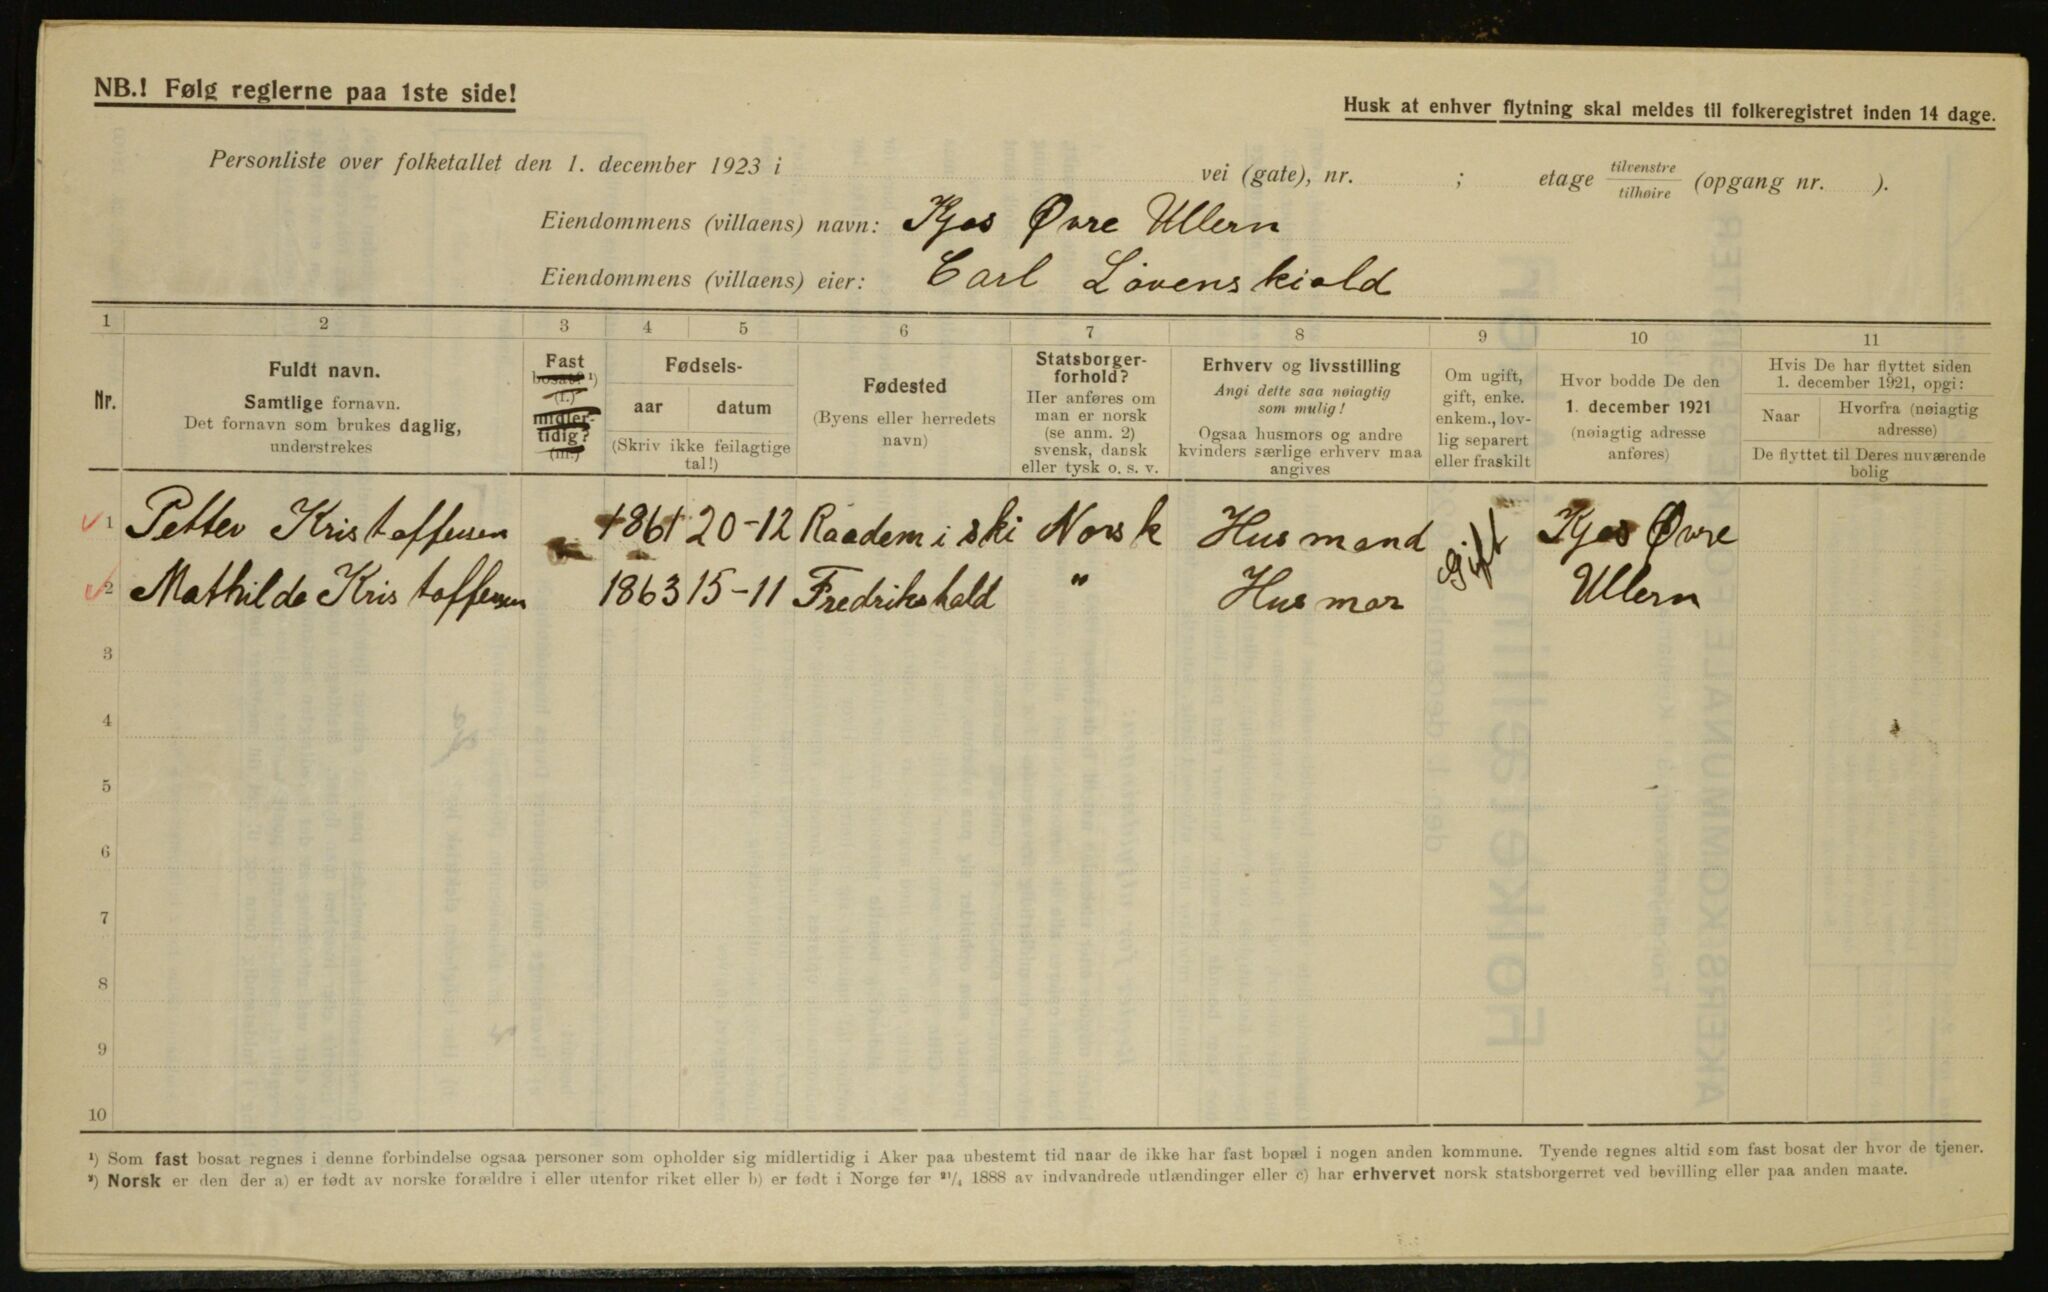 NB.! Følg reglerne paa 1ste side!
Husk at enhver flytning skal meldes til folkeregistret inden 14 dage.
Personliste over folketallet den 1. december 1923 i vei (gate), nr. ; etage tilvenstre tilhøire (opgang nr. ).
Eiendommens (villaens) navn: Kjos Øvre Ullern
Eiendommens (villaens) eier: Carl Løvenskiold
1 2 3 4 5 6 7 8 9 10 11
Nr.
Fuldt navn.
Samtlige fornavn.
Det fornavn som brukes daglig,
understrekes
Fast
bosat? ¹)
(f.)
midler-
tidig?
(m.)
Fødsels-
aar datum
(Skriv ikke feilagtige
tal!)
Fødested
(Byens eller herredets
navn)
Statsborger-
forhold?
Her anføres om
man er norsk
(se anm. 2)
svensk, dansk
eller tysk o. s. v.
Erhverv og livsstilling
Angi dette saa nøiagtig
som mulig!
Ogsaa husmors og andre
kvinders særlige erhverv maa
angives
Om ugift,
gift, enke.
enkem., lov-
lig separert
eller fraskilt
Hvor bodde De den
1. december 1921
(nøiagtig adresse
anføres)
Hvis De har flyttet siden
1. december 1921, opgi:
Naar
Hvorfra (nøiagtig
adresse)
De flyttet til Deres nuværende
bolig
1 Petter Kristoffersen 1861 20-12 Raadem i ski Norsk Husmand Gift Kjos Øvre
2 Mathilde Kristoffersen 1863 15-11 Fredrikshald " Husmor Ullern
3
4
5
6
7
8
9
10
¹) Som fast bosat regnes i denne forbindelse ogsaa personer som opholder sig midlertidig i Aker paa ubestemt tid naar de ikke har fast bopæl i nogen anden kommune. Tyende regnes altid som fast bosat der hvor de tjener.
²) Norsk er den der a) er født av norske forældre i eller utenfor riket eller b) er født i Norge før ²¹/₄ 1888 av indvandrede utlændinger eller c) har erhvervet norsk statsborgerret ved bevilling eller paa anden maate.